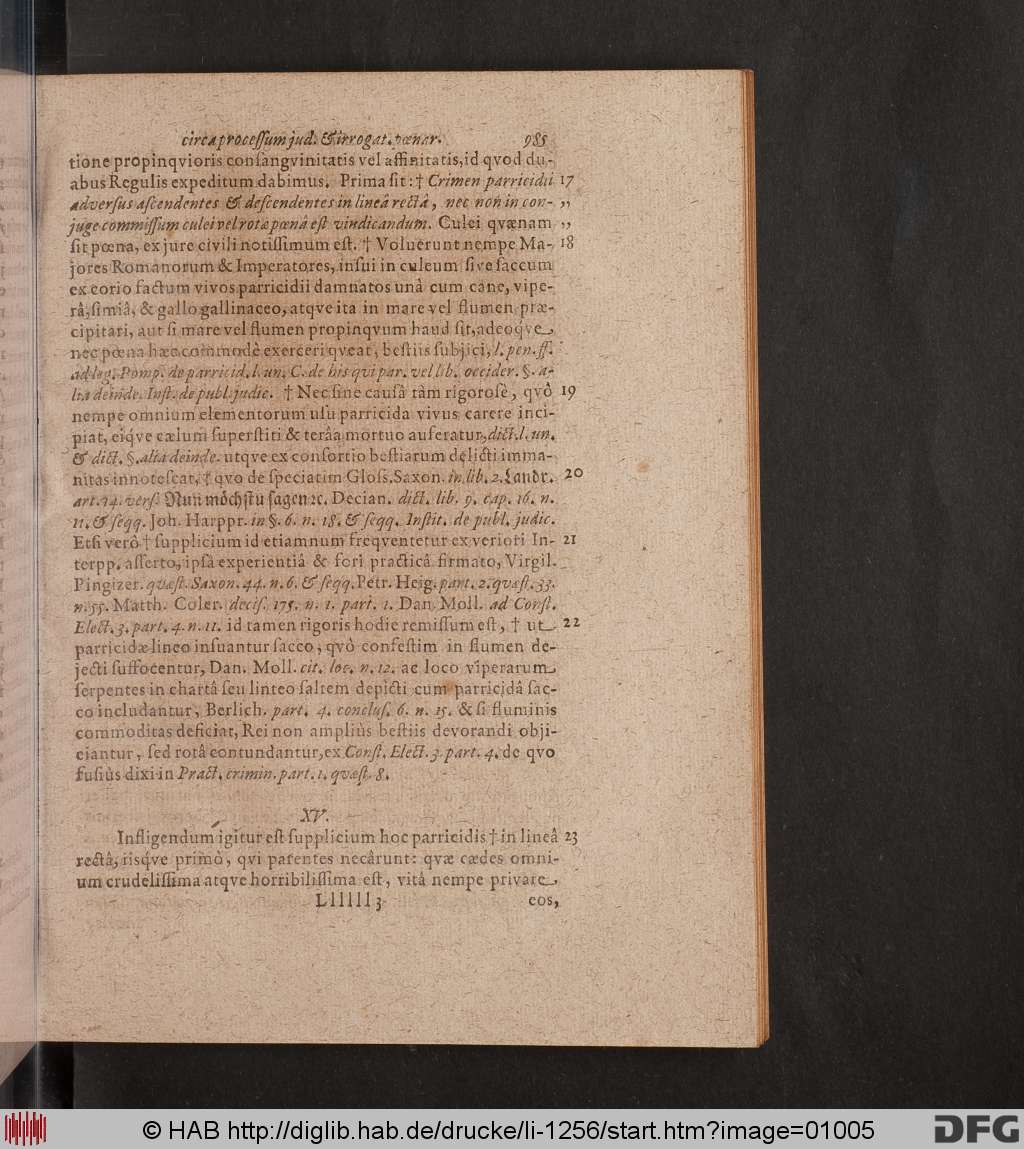 circa processum jud. & irrogat. pœnar. 985
tione propinqvioris consangvinitatis vel affinitatis, id qvod du-
abus Regulis expeditum dabimus. Prima sit: † Crimen parricidii 17
adversus ascendentes & descendentes in lineâ rectâ, nec non in con- „
juge commissum culei vel rotæ pœnâ est vindicandum. Culei qvænam „
sit pœna, ex jure civili notissimum est. † Voluerunt nempe Ma- 18
jores Romanorum & Imperatores, insui in culeum sive saccum
ex corio factum vivos parricidii damnatos unâ cum cane, vipe-
râ, simiâ, & gallo gallinaceo, atqve ita in mare vel flumen præ-
cipitari, aut si mare vel flumen propinqvum haud sit, adeoq́ve
nec pœna hæc commodè exerceri qveat, bestiis subjici, l. pen. ff.
ad leg. Pomp. de parricid. l. un. C. de his qui par. vel lib. occider. §. a-
lia deinde. Inst. de publ. judic. † Nec sine causâ tàm rigorosè, qvò 19
nempe omnium elementorum usu parricida vivus carere inci-
piat, eiq́ve cælum superstiti & terâa mortuo auferatur, dict. l. un.
& dict. §. alia deinde. utqve ex consortio bestiarum delicti imma-
nitas innotescat, † qvo de speciatim Gloss. Saxon. in lib. 2. Landr. 20
art. 14. vers. Nun möchstu sagen ꝛc. Decian. dict. lib. 9. cap. 16. n.
11. & seqq. Joh. Harppr. in §. 6. n. 18. & seqq. Instit. de publ. judic.
Etsi verò † supplicium id etiamnum freqventetur ex veriori In- 21
terpp. asserto, ipsâ experientiâ & fori practicâ firmato, Virgil.
Pingizer. quæst. Saxon. 44. n. 6. & seqq. Petr. Heig. part. 2. quæst. 33.
n. 55. Matth. Coler. decis. 175. n. 1. part. 1. Dan. Moll. ad Const.
Elect. 3. part. 4. n. 11. id tamen rigoris hodie remissum est, † ut 22
parricidæ lineo insuantur sacco, qvò confestim in flumen de-
jecti suffocentur, Dan. Moll. cit. loc. n. 12. ac loco viperarum
serpentes in chartâ seu linteo saltem depicti cum parricidâ sac-
co includantur, Berlich. part. 4. conclus. 6. n. 15. & si fluminis
commoditas deficiat, Rei non ampliùs bestiis devorandi obji-
ciantur, sed rotâ contundantur, ex Const. Elect. 3. part. 4. de qvo
fusiùs dixi in Pract. crimin. part. 1. quæst. 8.
XV.
Infligendum igitur est supplicium hoc parricidis † in lineâ 23
rectâ, iisq́ve primò, qvi parentes necârunt: qvæ cædes omni-
um crudelissima atqve horribilissima est, vitâ nempe privare
Llllll 3 eos,
© HAB http://diglib.hab.de/drucke/li-1256/start.htm?image=01005
DFG